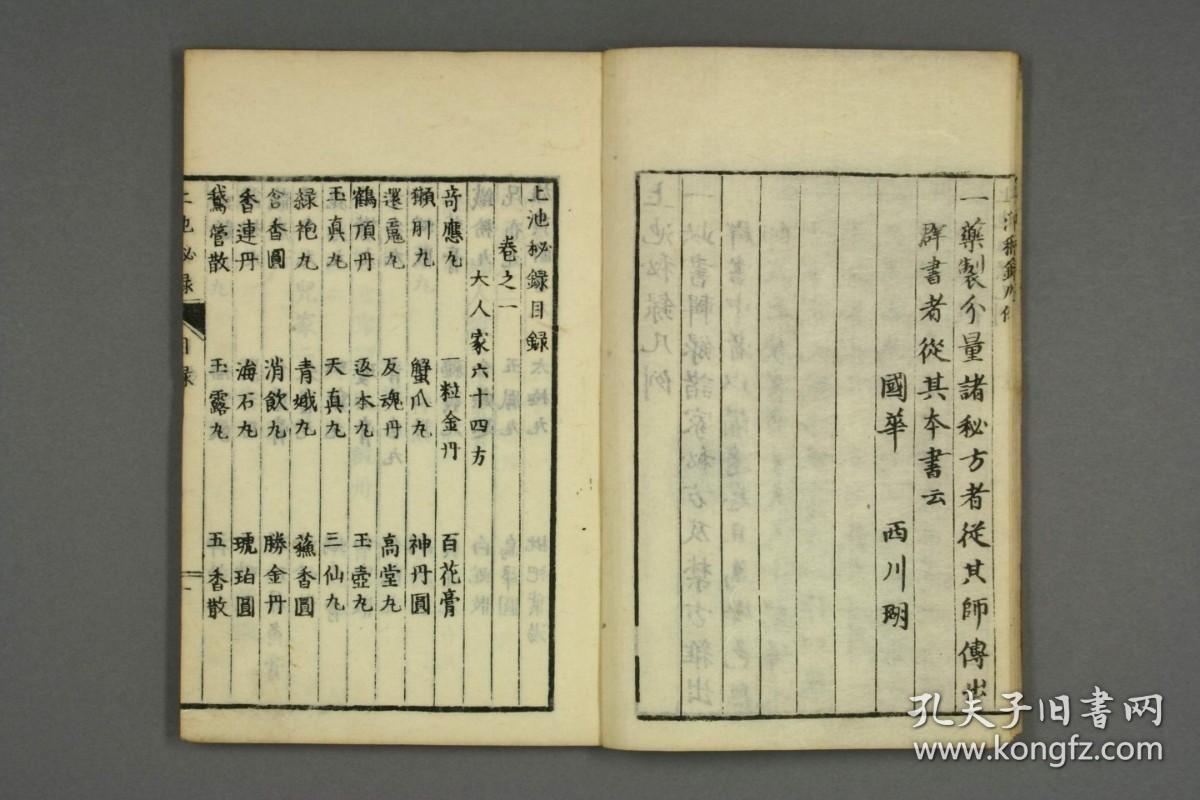 一藥製分量諸秘方者從其師傳出
群書者從其本書云
國華 西川瑚
上池秘録目録
卷之一
大人家六十四方
竒應丸 一粒金丹 百花膏
獺肝丸 蟹爪丸 神丹圓
還魂丸 反魂丹 高堂丸
鶴頂丹 返本丸 玉壺丸
玉真丸 天真丸 三仙丸
緑袍丸 青娥丸 蘓香圓
含香圓 消飲丸 勝金丹
香連丹 海石丸 琥珀圓
鵞管散 玉露丸 五香散
上池秘録 目録
孔夫子旧书网
www.kongfz.com